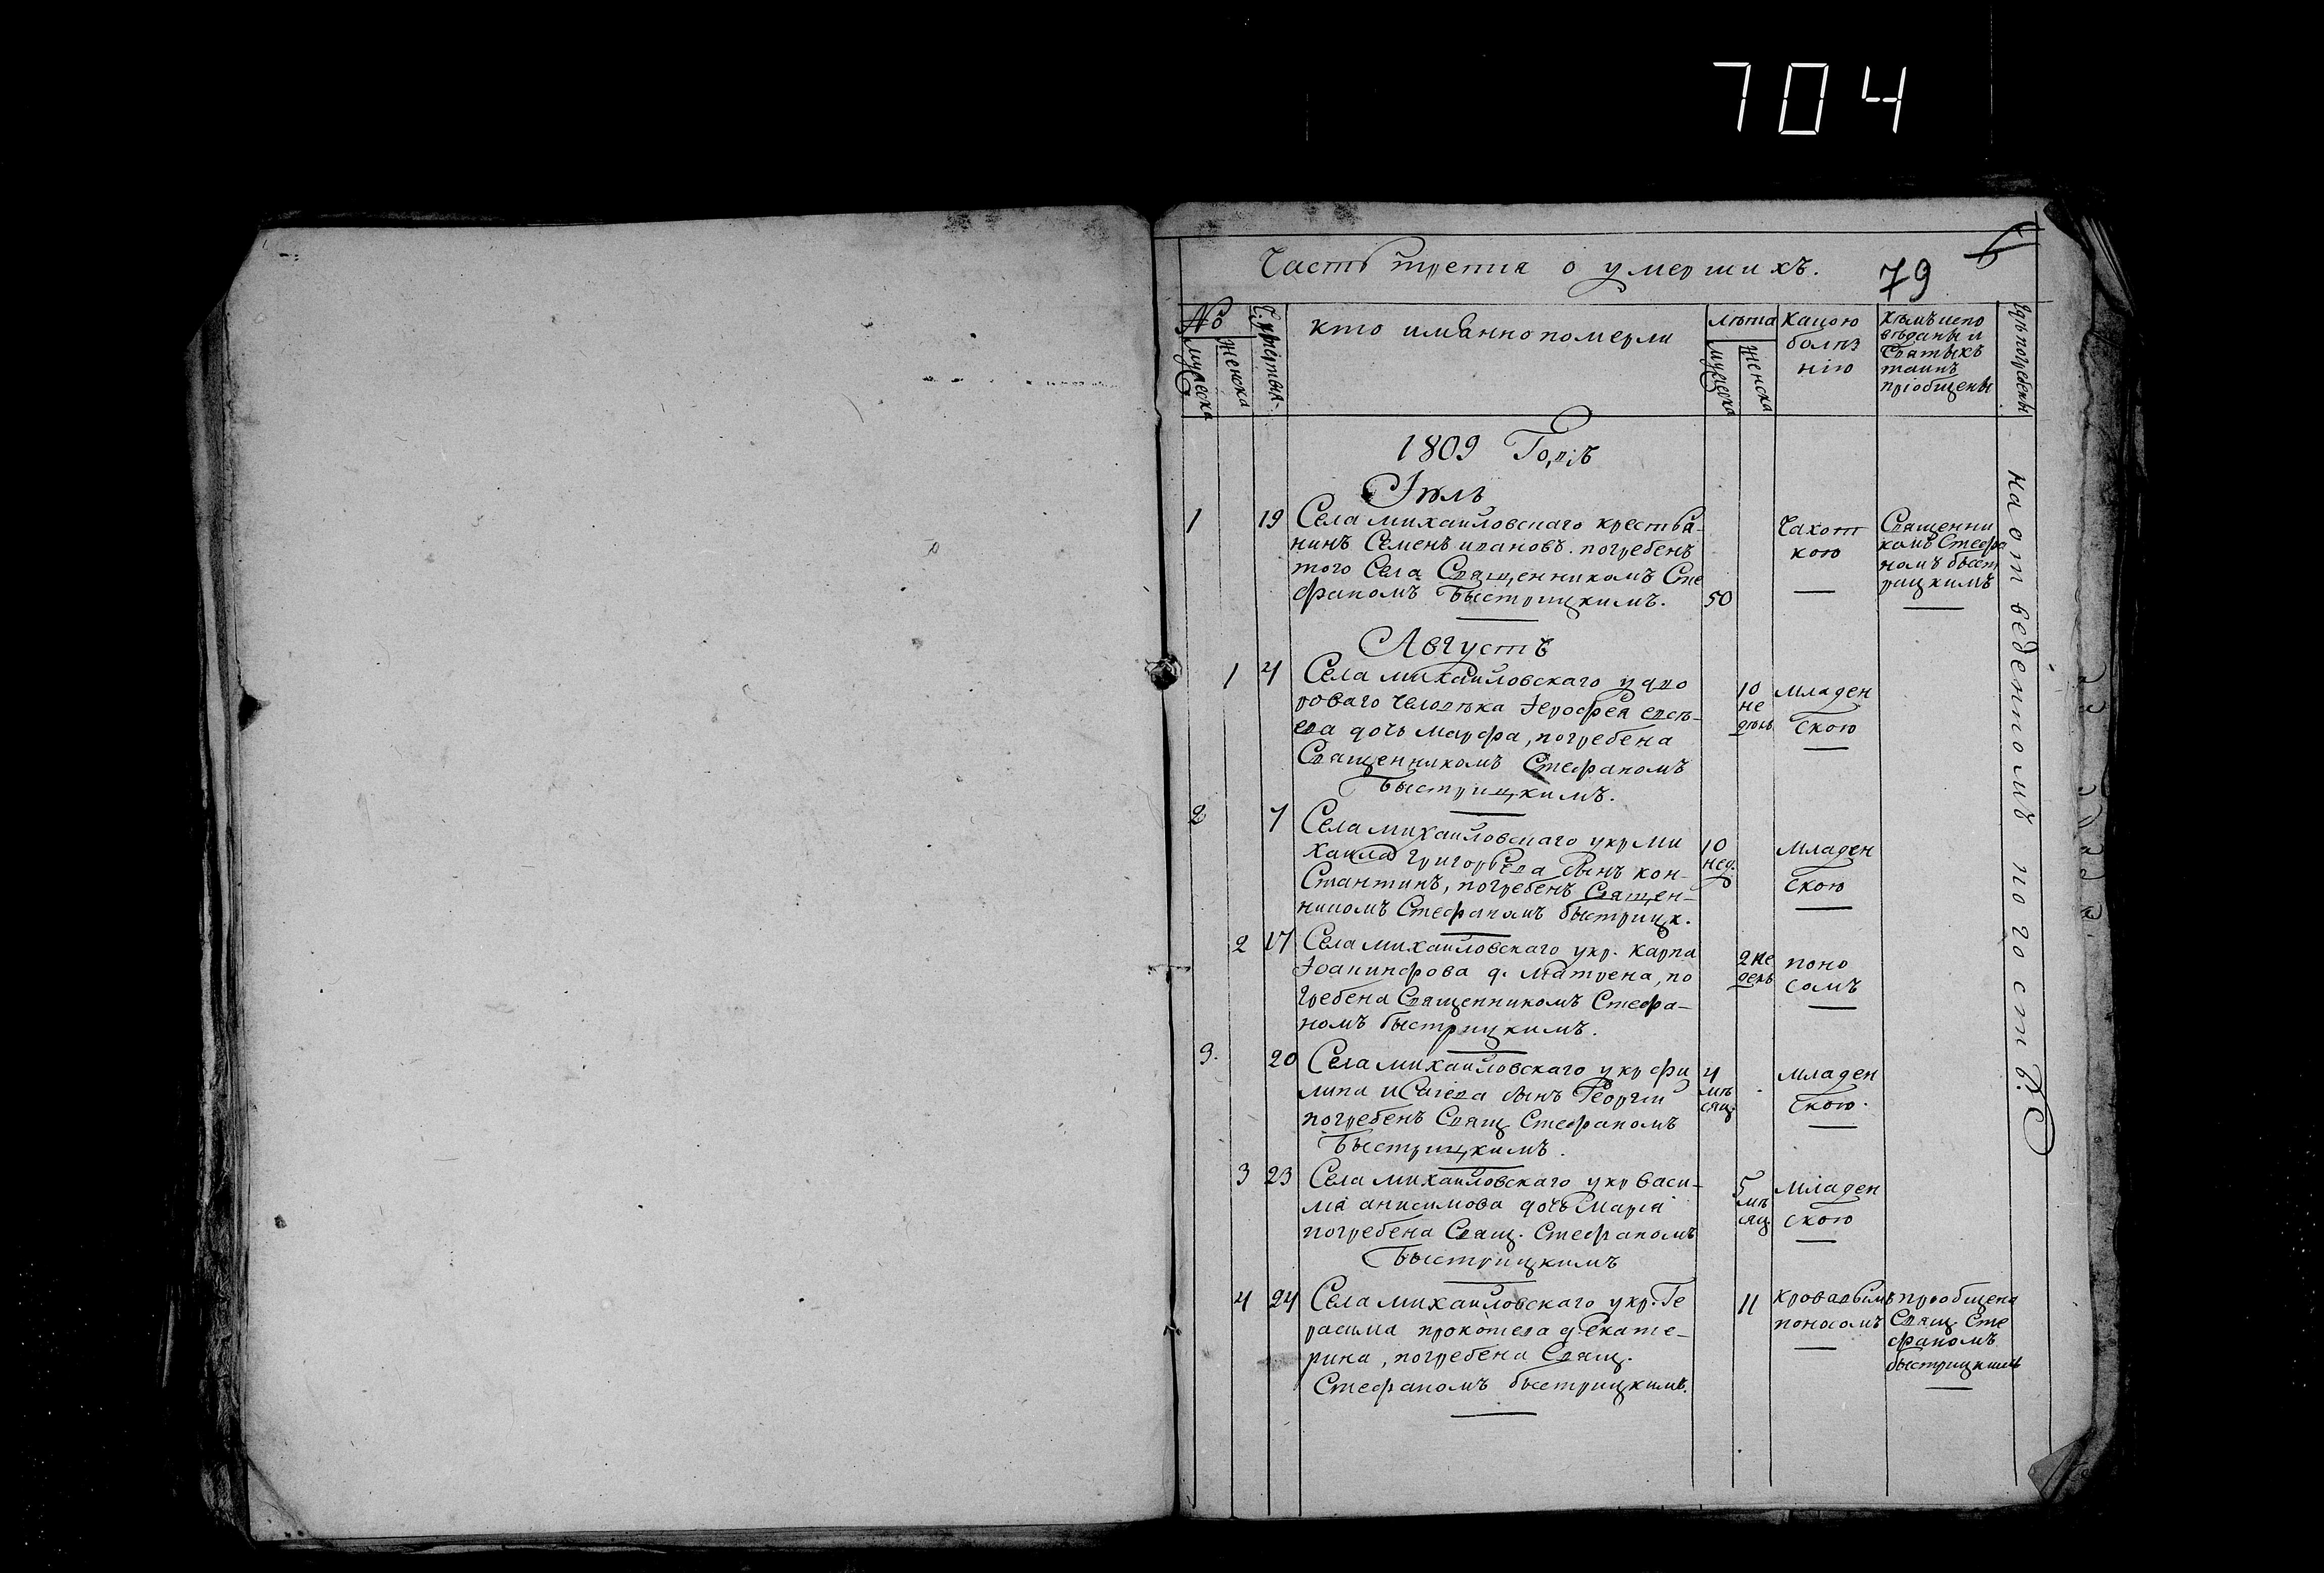 704
Часть третія о умершихъ.
79
6
№
мужеска
женска
Ч: умертвія
кто имянно померли
лѣта
мужеска
женска
Какою
болѣз
нію
Кѣмъ испо
вѣданы и
Святыхъ
таинъ
пріобщены
Гдѣ погребены
1809 Годъ
Іюль
1 19 Села михаиловскаго крестья-
нинъ Семенъ ивановъ. погребенъ
того Села Священникомъ Сте
фаномъ Быстрицкимъ. 50
Чахот
кою
Священни
комъ Стефа
номъ быст
рицкимъ
на отведенномъ погостѣ.
Августъ
1 4 Села михаиловскаго у дво
роваго человѣка Іерофея евсѣ-
ева дочь марфа, погребена
Священникомъ Стефаномъ
Быстрицкимъ.
10
не
дѣль
младен
скою
2 7 Села михаиловскаго у кр ми
хаила григорьева сынъ кон-
стантинъ, погребенъ Священ-
никомъ Стефаномъ быстрицк.
10
нед.
младен
скою
2 17 Села михаиловскаго у кр. карпа
Іоанинфова д. матрена, по
гребена Священникомъ Стефа-
номъ быстрицкимъ.
2 не
дель
поно
сомъ
3. 20 Села михаиловскаго у кр фи
липа исаіева сынъ Георгій
погребенъ Свящ Стефаномъ
Быстрицкимъ.
4
мѣ
сяц.
младен
скою.
3 23 Села михаиловскаго у кр васи-
лія анисимова дочь Марія
погребена Свящ. Стефаномъ
Быстрицкимъ
5
мѣ
сяц.
младен
скою
4 24 Села михаиловскаго у кр. Ге
расима прокофева д. Екате-
рина, погребена Свящ.
Стефаномъ быстрицкимъ.
11
кровавымъ
поносомъ
приобщена
Свящ. Сте
фаномъ
быстрицкимъ